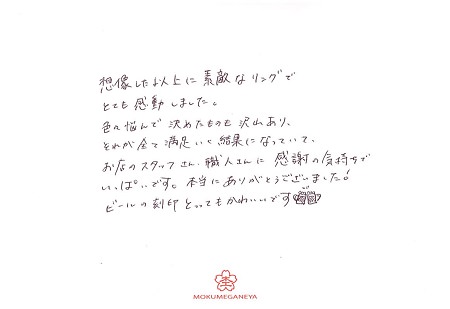 想像した以上に素敵なリングで
とても感動しました。
色々悩んで決めたものも沢山あり、
それが全て満足いく結果になっていて、
お店のスタッフさん、職人さんに感謝の気持ちで
いっぱいです。本当にありがとうございました!
ビールの刻印とってもかわいいです
MOKUMEGANEYA